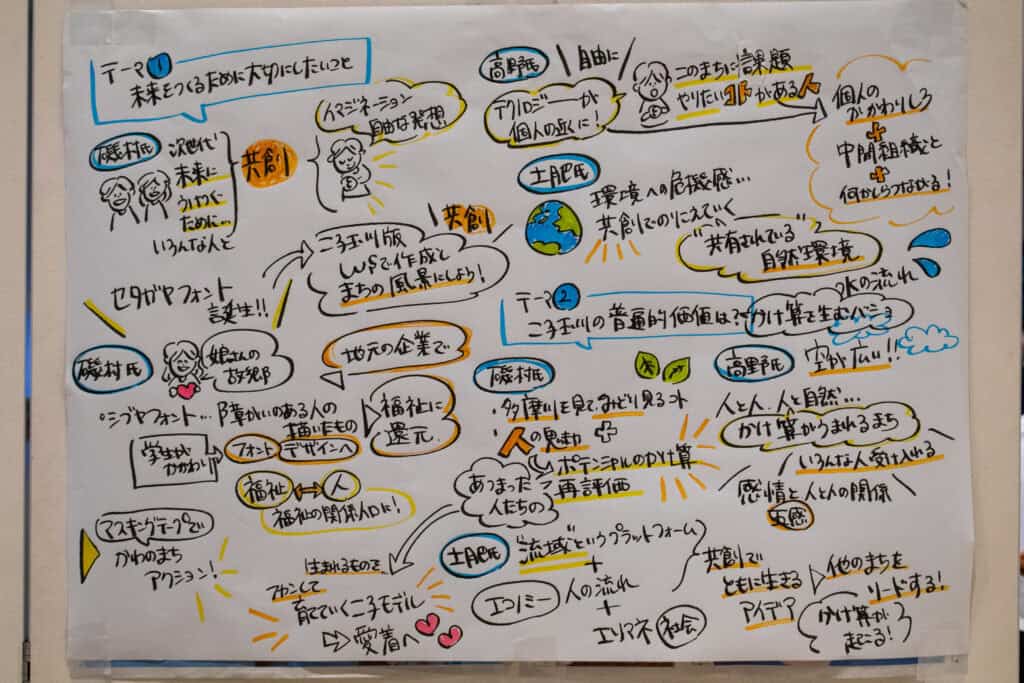 テーマ1
未来をつくるために大切にしたいこと
磯村氏
次世代
未来に
うけつぐ
ために…
いろんな人と
共創
イマジネーション
自由な発想
セタガヤフォント
誕生!!
ニ子玉川版
WSで作成と
まちの風景にしよう!
共創
高野氏
自由に
テクノロジーが
個人の近くに!
このまちに課題
やりたいコトがある人
個人の
かかわりしろ
+
中間組織と
+
何かしらつながる!
土肥氏
環境への危機感…
共創でのりこえていく
"共有されている
自然環境
テーマ2
ニ子玉川の普遍的価値は?
水の流れ
かけ算を生むバショ
磯村氏
娘さんの
故郷
シブヤフォント…障がいのある人の
描いたもの
学生が
かかわり
フォント
デザインへ
地元の企業で
福祉に
還元
福祉
人
福祉の関係人口に!
マスキングテープで
かわのまち
アクション!
磯村氏
・多摩川を見て、みどり見るコト
人の魅力
+
ポテンシャルのかけ算
再評価
あつまった
人たちの
生まれるものを
ファンして
育てていくニ子モデル
愛着へ
高野氏
空が広い!!
人と人、人と自然…
かけ算がうまれるまち
いろんな人受け入れる
感情と人と人の関係
五感
土肥氏
"流域"というプラットフォーム
エコノミー
人の流れ
+
エリマネ
社会
共創で
ともに生きる
アイデア
他のまちを
リードする!
かけ算が
起こる!